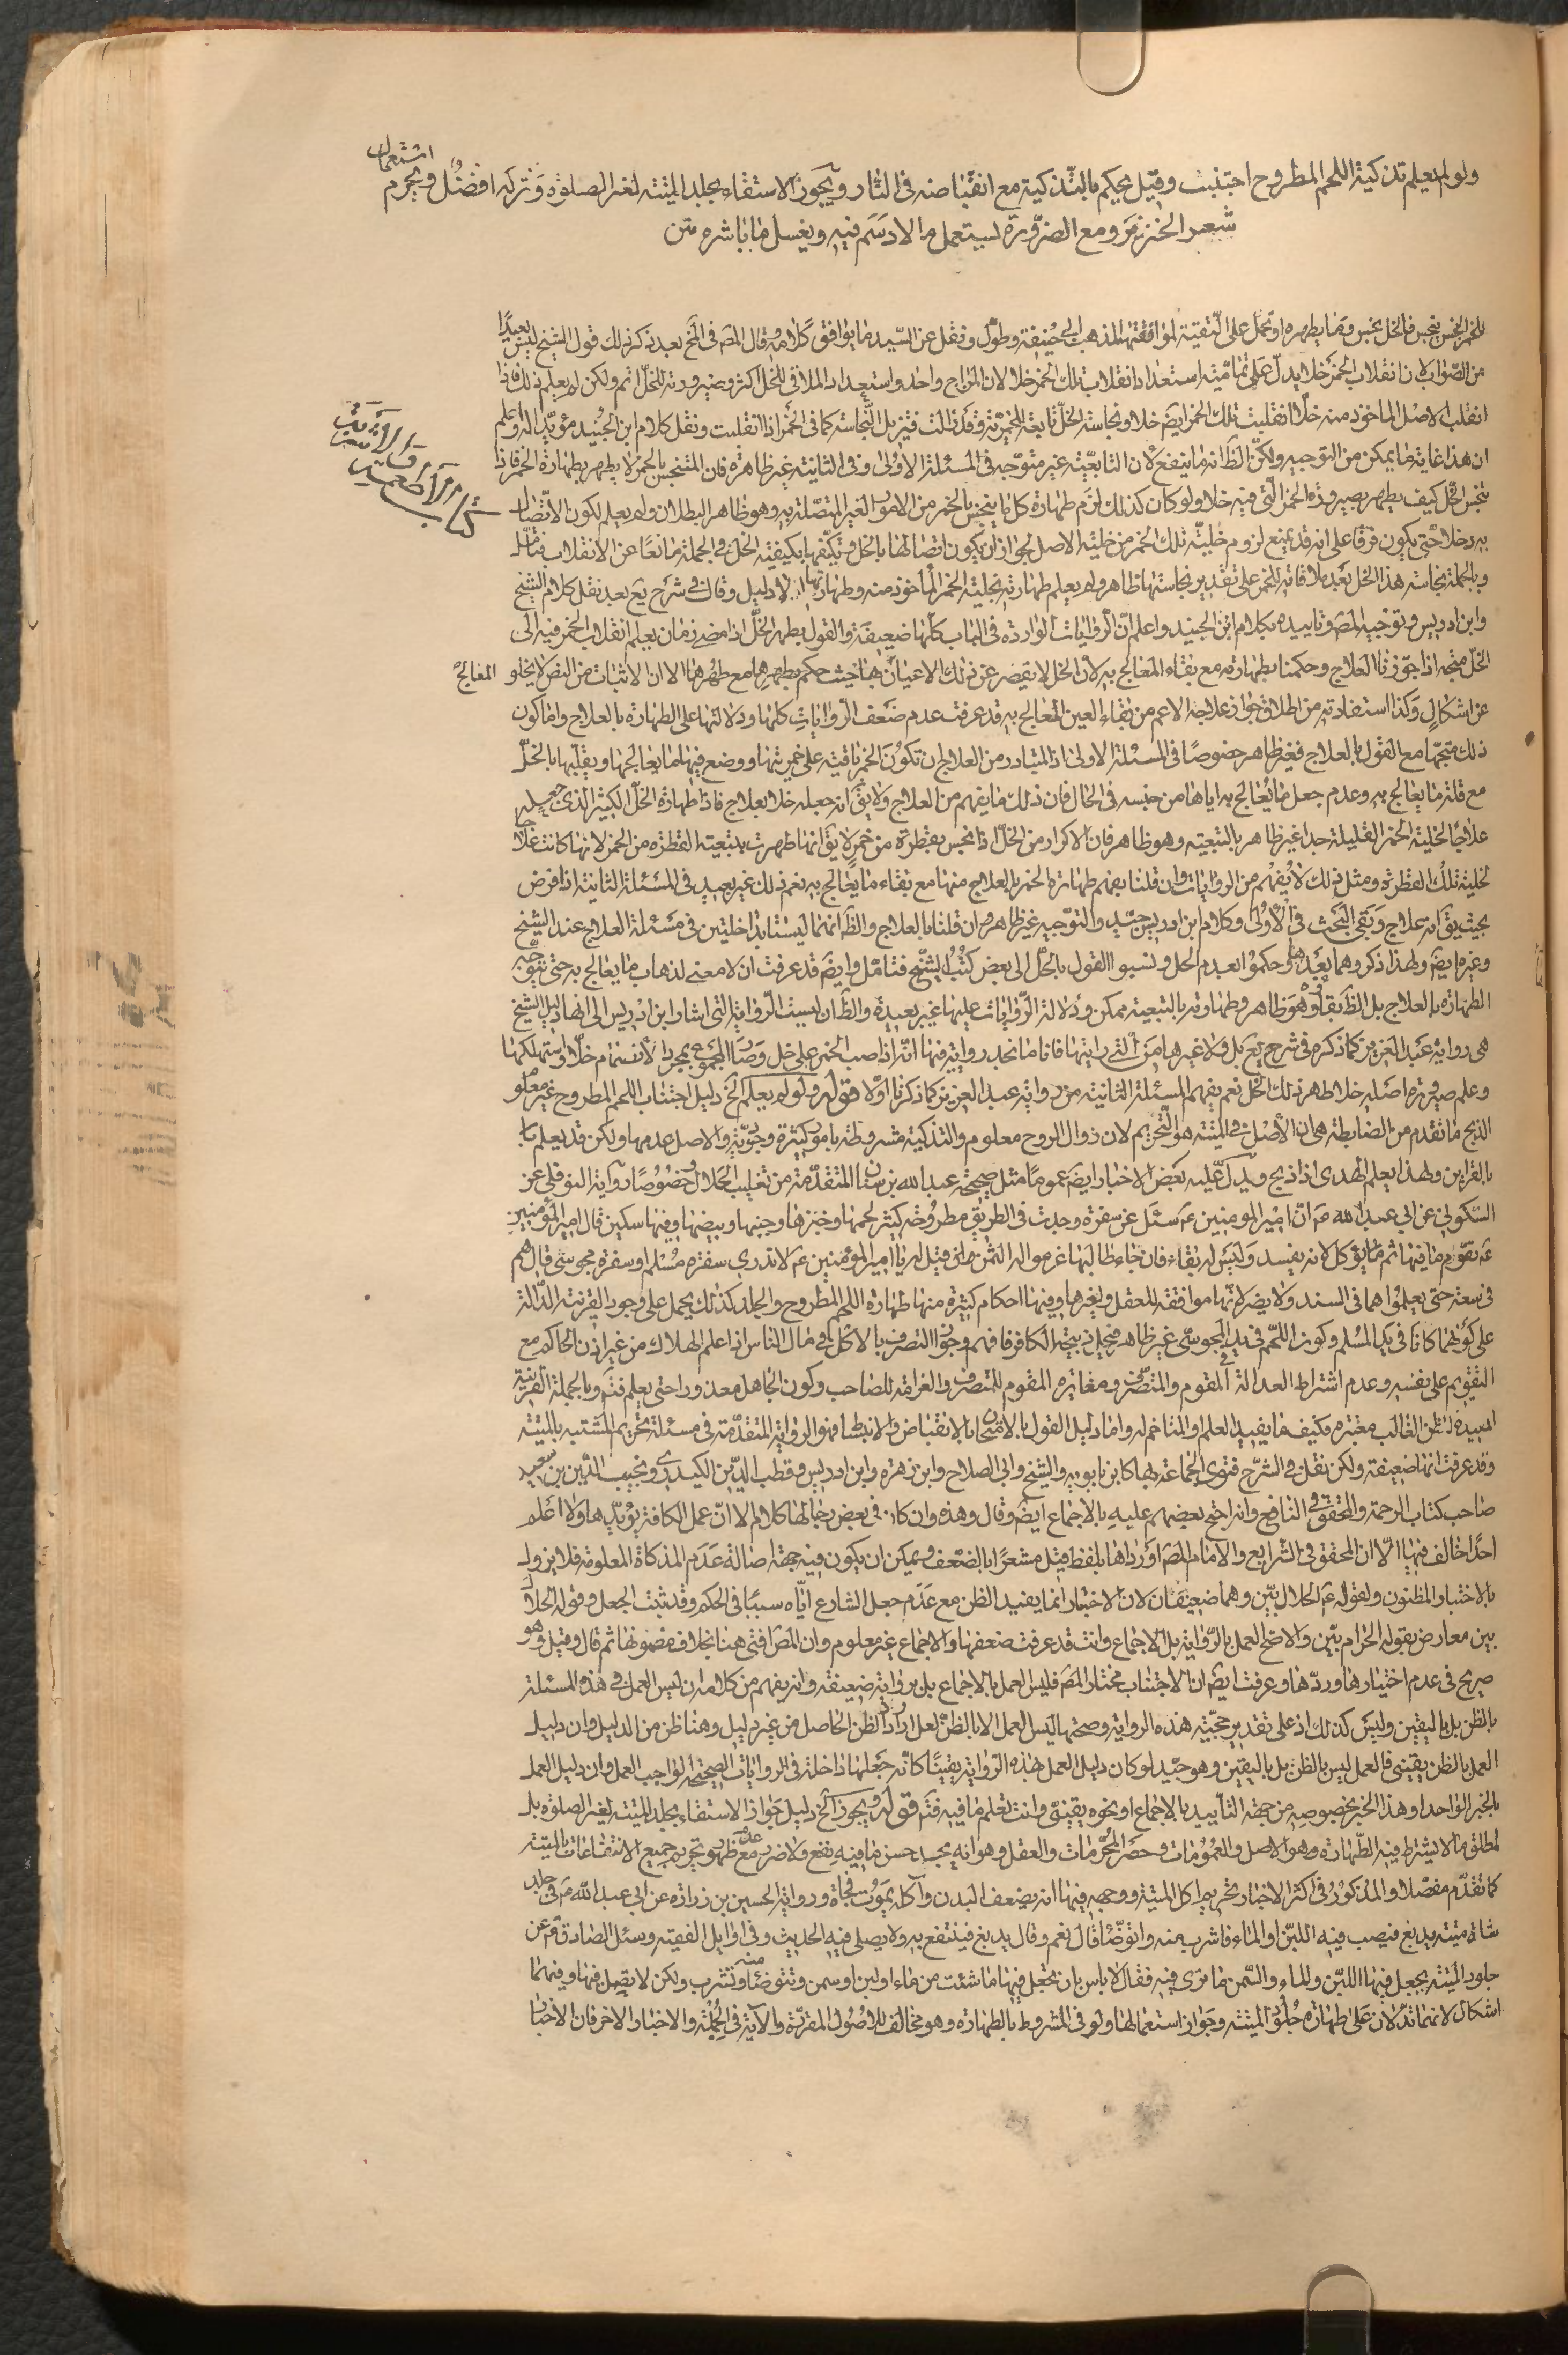 ولو لم يعلم تذكية اللحم المطروح اجتنبت وقيل يحكم بالتذكية مع انقباضه فى النار ويجوز الاستقاء بجلد الميتة لغير الصلوة وتركه افضل ويحرم استعمال
شعر الخنزير ومع الضرورة يستعمل ما لا دسم فيه ويغسل ما باشره متن
كتاب الأطعمة والأشربة
للخمر نجس ينجس فالخل نجس وما يطهره او تحمل على التقية لموافقتها لمذهب ابى حنيفة وطول ونقل عن السيد ما يوافق كلامه قال المص فى المخ بعد ذكر ذلك قول الشيخ ليس بعيدا
من الصواب لان انقلاب الخمر خلا يدل على تمامية استعداد انقلاب تلك الخمر خلا لان المزاج واحد واستعداد الملاقى للخل اكثر وصيرورته للخل اتم ولكن لم يعلم ذلك فاذا
انقلب الاصل الماخوذ منه خلا انقلبت تلك الخمر ايضَ خلا ونجاسة الخل تابعة للخمرية وقد زالت فتزيل النجاسة كما فى الخمر اذا انقلبت ونقل كلام ابن الجنيد مؤيدا له واعلم
ان هذا غاية ما يمكن من التوجيه ولكن الظَ انه ما ينفع لان التابعية غير متوجه فى المسئلة الاولى وفى الثانية غير ظاهرة فان المتنجس بالخمر لا يطهر بطهارة الخمر فاذا
نجس الخل كيف يطهر بصيرورة الخمر التى فيه خلا ولو كان كذلك لزم طهارة كل ما ينجس بالخمر من الامور الغير المتصلة به وهو ظاهر البطلان ولم يعلم لكون الاتصال
به دخلا حتى يكون فرقا على انه قد يمنع لزوم خلية تلك الخمر من خلية الاصل لجواز ان يكون اتصالها بالخل وتكيفها بكيفية الخل فى الجملة مانعا عن الانقلاب فتامل
وبالجملة نجاسة هذا الخل بعد ملاقاته للخمر على تقدير نجاستها ظاهر ولم يعلم طهارته بخلية الخمر الماخوذ منه وطهارتها لا دليل وقال فى شرح يع بعد نقل كلام الشيخ
وابن ادريس وتوجيه المص وتاييده بكلام ابن الجنيد واعلم ان الروايات الواردة فى الباب كلها ضعيفة والقول بطهر الخل اذا مضى زمان يعلم انقلاب الخمر فيه الى
الخل متجه اذا جوزنا العلاج وحكمنا بطهارته مع بقاء المعالج به لان الخل لا يقصر عن تلك الاعيان المعالج بها حيث حكم بطهرها مع طهرها الا ان الاثبات من النص لا يخلو
عن اشكال وكذا استفادته من اطلاق جواز علاجه الاعم من بقاء العين المعالج به قد عرفت عدم ضعف الروايات كلها ودلالتها على الطهارة بالعلاج واما كون
ذلك متجها مع القول بالعلاج فغير ظاهر خصوصا فى المسئلة الاولى اذ المتبادر من العلاج ان تكون الخمر باقية على خمريتها ووضع فيها ما يعالجها ويقلبها بالخل
مع قلة ما يعالج به وعدم جعل ما يعالج به اياها من جنسه فى الحال فان ذلك ما يفهم من العلاج ولا يق انه جعله خلا بعلاج فاذا طهارة الخل الكثير الذى جعله
علاجا لخلية الخمر القليلة جدا غير ظاهر بالتبعية وهو ظاهر فان الاكرار من الخل اذا نجس بقطرة من خمر لا يق انها طهرت بتبعية القطرة من الخمر لانها كانت علاجا
لخلية تلك القطرة ومثل ذلك لا يفهم من الروايات وان قلنا بفهم طهارة الخمر بالعلاج منها مع بقاء ما يعالج به نعم ذلك غير بعيد فى المسئلة الثانية اذا فرض
بحيث يق انه علاج وبقى البحث فى الاولى وكلام ابن ادريس جيد والتوجيه غير ظاهر وان قلنا بالعلاج والظَ انهما ليستا بداخلتين فى مسئلة العلاج عند الشيخ
وغيره ايضَ ولهذا ذكروهما بعدها وحكموا بعدم الحل ونسبوا القول بالحل الى بعض كتب الشيخ فتامل وايضَ قد عرفت ان لا معنى لذهاب ما يعالج به حتى يتوجه
الطهارة بالعلاج بل الظَ بقاؤه وهو ظاهر وطهارته بالتبعية ممكن ودلالة الروايات عليها غير بعيدة والظَ ان ليست الرواية التى اشار ابن ادريس الى انها دليل الشيخ
هى رواية عبد العزيز كما ذكره فى شرح يع بل ولا غيرها من التى رايتها فانا ما نجد رواية فيها انه اذا صب الخمر على خل وصار المجموع بمجرد الانضمام خلا واستهلكها
وعلم صيرورة اصله خلا طهر ذلك الخل نعم يفهم المسئلة الثانية من رواية عبد العزيز كما ذكرنا اولا قوله ولو لم يعلم الخ دليل اجتناب اللحم المطروح غير معلوم
الذبح ما تقدم من الضابطة هى ان الاصل فى الميتة هو التحريم لان زوال الروح معلوم والتذكية مشروطة بامور كثيرة وجودية والاصل عدمها ولكن قد يعلم
بالقراين ولهذا يعلم الهدى اذا ذبح ويدل عليه بعض الاخبار ايضَ عموما مثل صحيحة عبد الله بن سنان المتقدمة من تغليب الحلال وخصوصا رواية النوفلى عن
السكونى عن ابى عبد الله عَ ان امير المومنين عَ سئل عن سفرة وجدت فى الطريق مطروحة كثير لحمها وخبزها وجبنها وبيضها وفيها سكين قال امير المؤمنين
عَ يقوم ما فيها ثم يؤكل لانه يفسد وليس له بقاء فان جاء طالبها غرموا له الثمن قيل له يا امير المؤمنين عَ لا ندرى سفرة مسلم او سفرة مجوسى قال هم
فى سعة حتى يعلموا هما فى السند ولا يضر لانها موافقة للعقل ولغيرها وفيها احكام كثيرة منها طهارة اللحم المطروح والجلد كذلك يحمل على وجود القرينة الدالة
على كونهما كانا فى يد المسلم وكون اللحم فى يد المجوسى غير ظاهر فيحل ذبيحة الكافر فافهم وجواز التصرف بالاكل فى مال الناس اذا علم الهلاك من غير اذن الحاكم مع
التقويم على نفسه وعدم اشتراط العدالة فى المقوم والمتصرف ومغايرة المقوم للمتصرف والغرامة للصاحب وكون الجاهل معذورا حتى يعلم فتم وبالجملة القرينة
المفيدة للظن الغالب معتبرة فكيف ما يفيد العلم او المتاخم له واما دليل القول بالامتحان بالانقباض والانبساط فهو الرواية المتقدمة فى مسئلة تحريم المشتبه بالميتة
وقد عرفت انها ضعيفة ولكن نقل فى الشرح فتوى الجماعة بها كابن بابويه والشيخ وابى الصلاح وابن زهرة وابن ادريس وقطب الدين الكيدرى ونجيب الدين بن سعيد
صاحب كتاب الرحمة والمحقق فى النافع وانه احتج بعضهم عليه بالاجماع ايضَ وقال وهذه وان كان فى بعض رجالها كلام الا ان عمل الكافة يؤيدها ولا اعلم
احدا خالف فيها الا ان المحقق فى الشرايع والامام المص اورداها بلفظ قيل مشعرا بالضعف ويمكن ان يكون فيه جهة اصالة عدم المذكاة المعلومة فلا يزول
بالاختبار المظنون ولقوله عَ الحلال بين وهما ضعيفان لان الاختبار انما يفيد الظن مع عدم جعل الشارع اياه سببا فى الحكم وقد ثبت الجعل وقوله الحلال
بين معارض بقوله الحرام بين والاصح العمل بالرواية بل الاجماع وانت قد عرفت ضعفها والاجماع غير معلوم وان المص افتى هنا بخلاف مضمونها ثم قال وقيل وهو
صريح فى عدم اختيارها وردها وعرفت ايضَ ان الاجتناب مختار المص فليس العمل بالاجماع بل برواية ضعيفة وانه يفهم من كلامه ان ليس العمل فى هذه المسئلة
بالظن بل باليقين وليس كذلك اذ على تقدير حجية هذه الرواية وصحتها ليس العمل الا بالظن لعل اراد الظن الحاصل من غير دليل وهنا ظن من الدليل وان دليل
العمل بالظن يقينى فالعمل ليس بالظن بل باليقين وهو جيد لو كان دليل العمل بهذه الرواية يقينا كانه جعلها داخلة فى الروايات الصحيحة الواجب العمل وان دليل العمل
بالخبر الواحد وهذا الخبر بخصوصه من جهة التأييد بالاجماع او نحوه يقينى وانت تعلم ما فيه فتم قوله ويجوز الخ دليل جواز الاستقاء بجلد الميتة لغير الصلوة بل
لمطلق ما لا يشترط فيه الطهارة وهو الاصل والعمومات وحصر المحرمات والعقل وهو انه يجد حسن ما فيه نفع ولا ضرر مع عدم ظهور تحريم جميع الانتفاعات بالميتة
كما تقدم مفصلا والمذكور فى اكثر الاخبار تحريم اكل الميتة ووجهه فيها انه يضعف البدن وآكله يموت فجاة ورواية الحسين بن زرارة عن ابى عبد الله عَ فى جلد
شاة ميتة يدبغ فيصب فيه اللبن او الماء فاشرب منه واتوضا قال نعم وقال يدبغ فينتفع به ولا يصلى فيه الحديث وفى اوايل الفقيه وسئل الصادق عَ عن
جلود الميتة يجعل فيها اللبن والماء والسمن ما ترى فيه فقال لا باس بان تجعل فيها ما شئت من ماء او لبن او سمن وتتوضا منه وتشرب ولكن لا تصل فيها وفيهما
اشكال لانهما تدلان على طهارة جلود الميتة وجواز استعمالها ولو فى المشروط بالطهارة وهو مخالف للاصول المقررة والآية فى الجملة والاخبار الاخر فان الاخبار